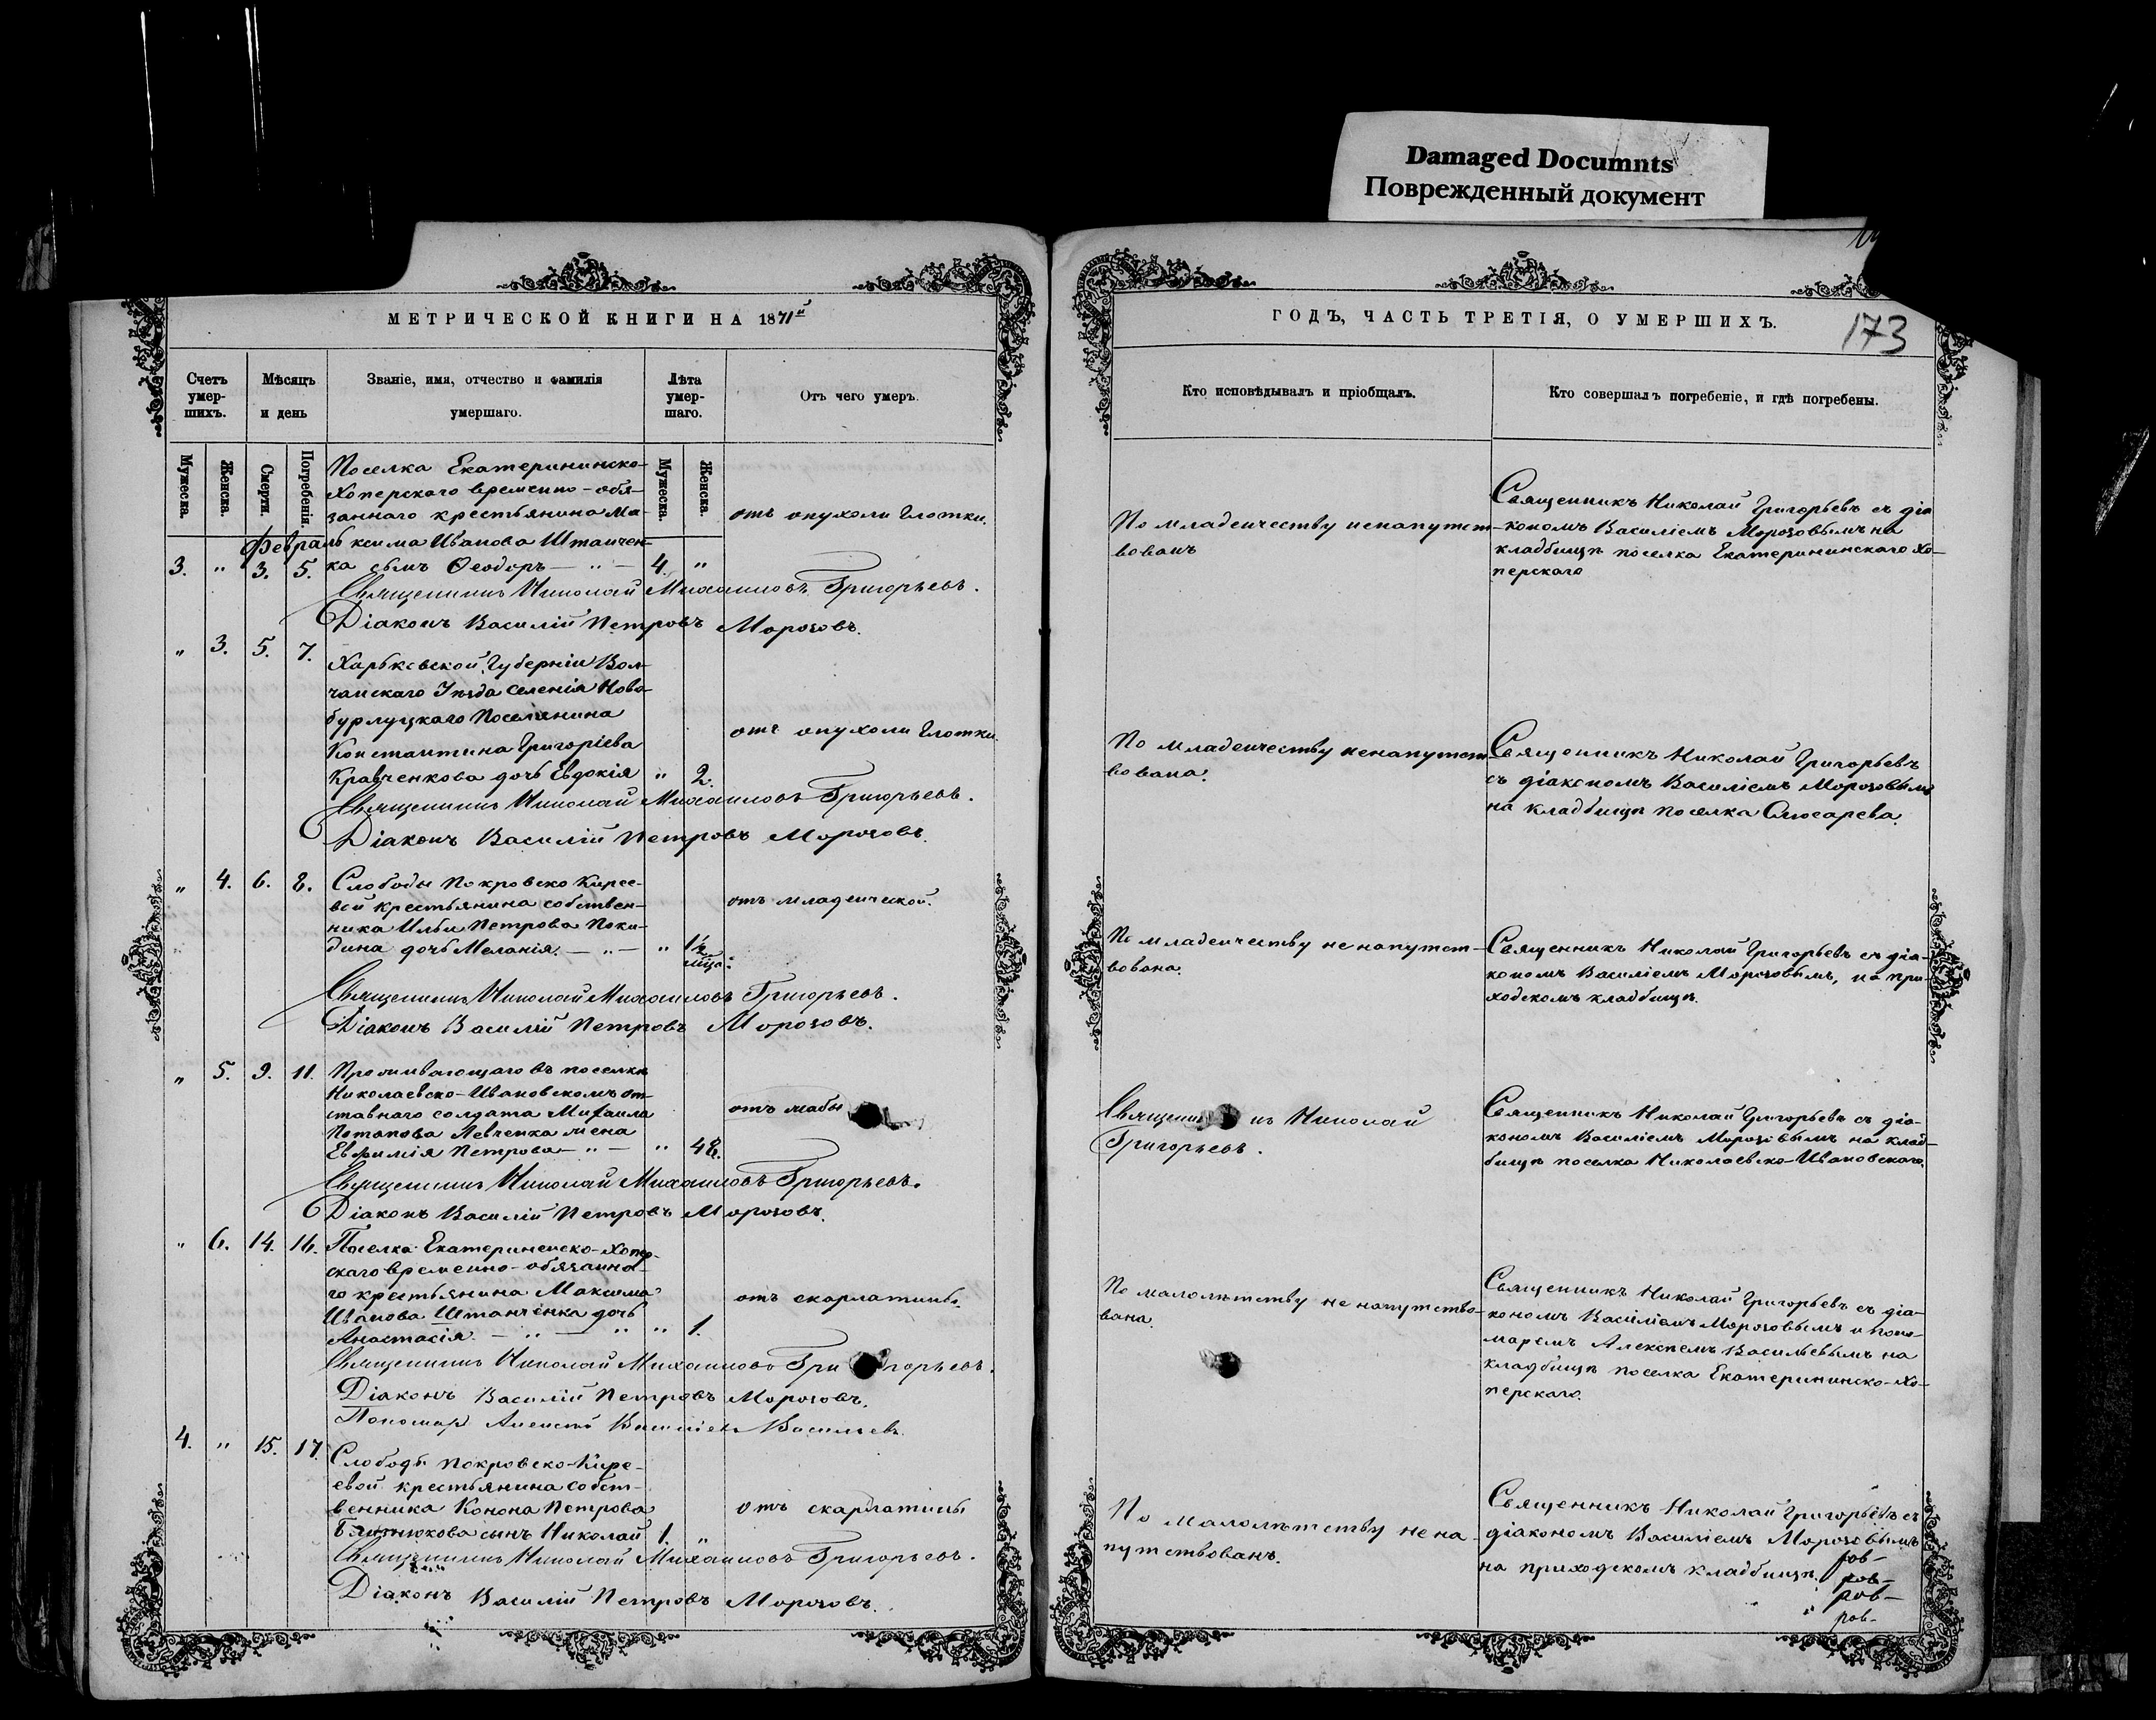 Damaged Documnts
Поврежденный документ
МЕТРИЧЕСКОЙ КНИГИ НА 1871й
Счетъ умер-шихъ.
Мѣсяцъ и день
Званіе, имя, отчество и фамилія умершаго.
Лѣта умер-шаго.
Отъ чего умеръ.
Мужеска.
Женска.
Смерти.
Погребенія.
Мужеска.
Женска.
Поселка Екатерининско-
Хоперскаго временно-обя-
заннаго крестьянина Ма-
Февраль ксима Иванова Штанчен-
3. " 3. 5. ка сынъ Ѳеодоръ — " — 4. "
отъ опухоли глотки.
Священникъ Николай Михаиловъ Григорьевъ.
Діаконъ Василій Петровъ Морозовъ.
" 3. 5. 7.
Харьковской Губерніи Вол-
чанскаго Уѣзда селенія Ново-
бурлуцкаго Поселянина
Константина Григоріева
Кравченкова дочь Евдокія " 2.
отъ опухоли глотки
Священникъ Николай Михаиловъ Григорьевъ.
Діаконъ Василій Петровъ Морозовъ.
" 4. 6. 8. Слободы Покровско Кирее-
вой крестьянина собствен-
ника Ильи Петрова Поки-
дина дочь Меланія. — " — "
отъ младенческой.
Священникъ Николай Михаиловъ Григорьевъ.
Діаконъ Василій Петровъ Морозовъ.
" 5. 9. 11. Проживающаго въ поселкѣ
Николаевско-Ивановскомъ от-
ставнаго солдата Михаила
Потапова Левченка жена
Евфимія Петрова — " — " 48.
отъ жабы
Священникъ Николай Михаиловъ Григорьевъ.
Діаконъ Василій Петровъ Морозовъ.
" 6. 14. 16. Поселка Екатерининско-Хопер-
скаго временно-обязанна-
го крестьянина Максима
Иванова Штанченка дочь
Анастасія. — " — " " 1.
отъ скарлатины.
Священникъ Николай Михаиловъ Григорьевъ.
Діаконъ Василій Петровъ Морозовъ.
Пономарь Алексѣй Васильевъ
4. " 15. 17.
Слободы Покровско-Кире-
евой крестьянина собст-
венника Конона Петрова
Битюкова сынъ Николай 1. "
отъ скарлатины
Священникъ Николай Михаиловъ Григорьевъ.
Діаконъ Василій Петровъ Морозовъ.
ГОДЪ, ЧАСТЬ ТРЕТІЯ, О УМЕРШИХЪ.
173
Кто исповѣдывалъ и пріобщалъ.
Кто совершалъ погребеніе, и гдѣ погребены.
По младенчеству ненапутст-
вованъ
Священникъ Николай Григорьевъ съ діа-
кономъ Василіемъ Морозовымъ на
кладбищѣ поселка Екатерининскаго Хо-
перскаго
По младенчеству ненапутст
вована.
Священникъ Николай Григорьевъ
съ діакономъ Василіемъ Морозовымъ
на кладбищѣ поселка Слюсарева.
По младенчеству не напутст-
вована.
Священникъ Николай Григорьевъ съ діа-
кономъ Василіемъ Морозовымъ, на при-
ходскомъ кладбищѣ.
Священникъ Николай
Григорьевъ.
Священникъ Николай Григорьевъ съ діа-
кономъ Василіемъ Морозовымъ на клад-
бищѣ поселка Николаевско-Ивановскаго.
По малолѣтству не напутство-
вана.
Священникъ Николай Григорьевъ съ діа-
кономъ Василіемъ Морозовымъ и поно-
маремъ Алексѣемъ Васильевымъ на
кладбищѣ поселка Екатерининско-Хо-
перскаго.
По малолѣтству не на-
путствованъ.
Священникъ Николай Григорьевъ съ
діакономъ Василіемъ Морозовымъ
на приходскомъ кладбищѣ.
ров-
ров-
ров-
ров-